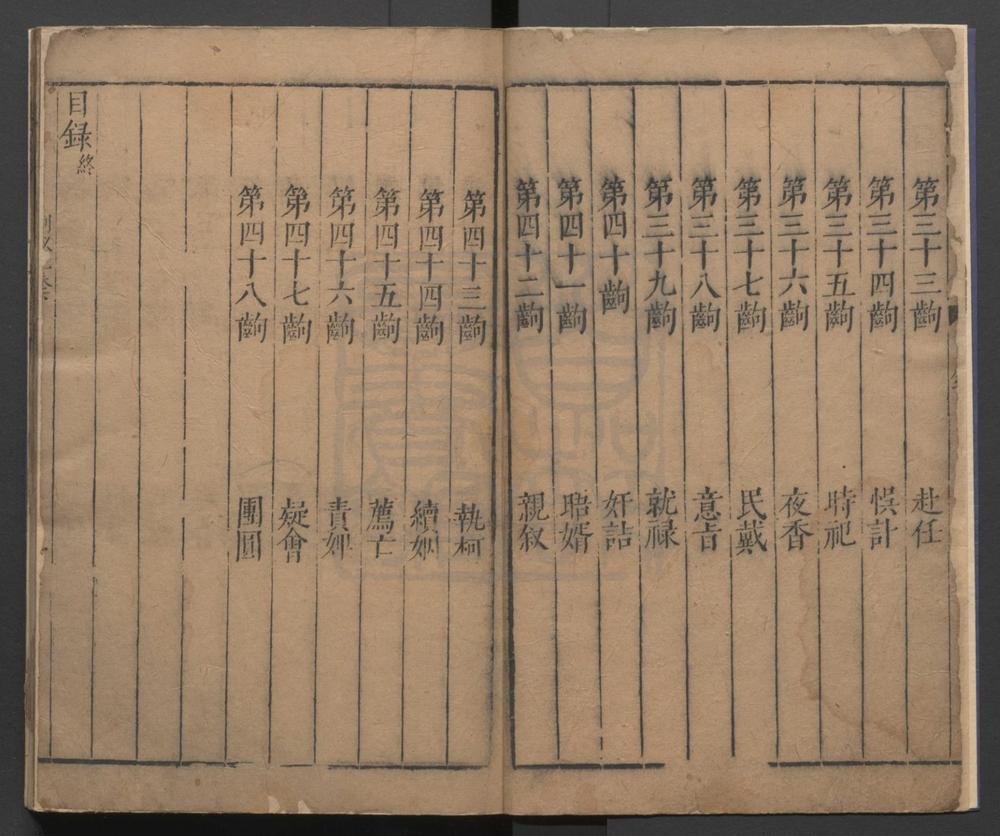 第三十三齣 赴任
第三十四齣 悞計
第三十五齣 時祀
第三十六齣 夜香
第三十七齣 民戴
第三十八齣 意旨
第三十九齣 就祿
第四十齣 奸詰
第四十一齣 瞎婿
第四十二齣 親叙
第四十三齣 執柯
第四十四齣 續姻
第四十五齣 薦亡
第四十六齣 責婢
第四十七齣 疑會
第四十八齣 團圓
目録終